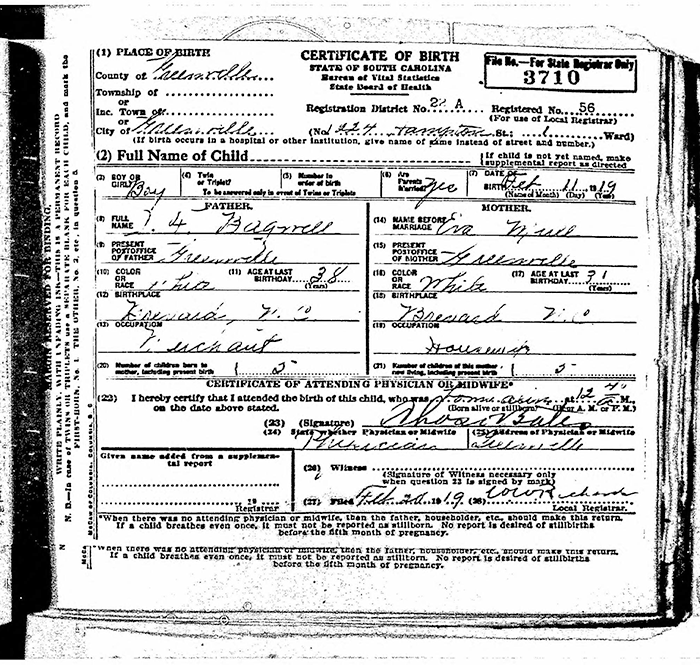 (1) PLACE OF BIRTH
County of Greenville
Township of
or
Inc. Town of
or
City of Greenville
CERTIFICATE OF BIRTH
STATE OF SOUTH CAROLINA
Bureau of Vital Statistics
State Board of Health
File No.—For State Registrar Only
3710
Registration District No. 22 A Registered No. 56
(For use of Local Registrar)
(No. 224 Hampton St.; 1 Ward)
(If birth occurs in a hospital or other institution, give name of same instead of street and number.)
(2) Full Name of Child
If child is not yet named, make supplemental report as directed
(3) BOY OR GIRL? Boy
(4) Twin or Triplet?
(5) Number in order of birth
To be answered only in event of Twins or Triplets
(6) Are Parents Married? Yes
(7) DATE OF BIRTH Feb 11 1919
(Name of Month) (Day) (Year)
FATHER.
(8) FULL NAME Bagwell
(9) PRESENT POSTOFFICE OF FATHER Greenville
(10) COLOR OR RACE
(11) AGE AT LAST BIRTHDAY 38
(Years)
(12) BIRTHPLACE
Brevard, N. C
(13) OCCUPATION
Merchant
(20) Number of children born to mother, including present birth 5
MOTHER.
(14) NAME BEFORE MARRIAGE Eva
(15) PRESENT POSTOFFICE OF MOTHER Greenville
(16) COLOR OR RACE White
(17) AGE AT LAST BIRTHDAY 31
(Years)
(18) BIRTHPLACE
Brevard N C
(19) OCCUPATION
Housewife
(21) Number of children of this mother now living, including present birth 5
CERTIFICATE OF ATTENDING PHYSICIAN OR MIDWIFE*
(22) I hereby certify that I attended the birth of this child, who was at 12 M.,
on the date above stated. (Born alive or stillborn) (Hour A. M. or P. M.)
(23) (Signature)
(24) State whether Physician or Midwife (25) Address of Physician or Midwife
Physician Greenville
Given name added from a supplemental report
19
Registrar
(26) Witness
(Signature of Witness necessary only when question 23 is signed by mark)
(27) Filed Feb 20 1919 (28)
Local Registrar.
*When there was no attending physician or midwife, then the father, householder, etc., should make this return.
If a child breathes even once, it must not be reported as stillborn. No report is desired of stillbirths
before the fifth month of pregnancy.
*When there was no attending physician or midwife, then the father, householder, etc., should make this return.
If a child breathes even once, it must not be reported as stillborn. No report is desired of stillbirths
before the fifth month of pregnancy.
MARGIN RESERVED FOR BINDING.
WRITE PLAINLY, WITH UNFADING INK—THIS IS A PERMANENT RECORD
N. B.—In case of TWINS OR TRIPLETS use a SEPARATE BLANK FOR EACH CHILD, and mark the
FIRST-BORN, No. 1. THE OTHER, No. 2, etc. in question 5.